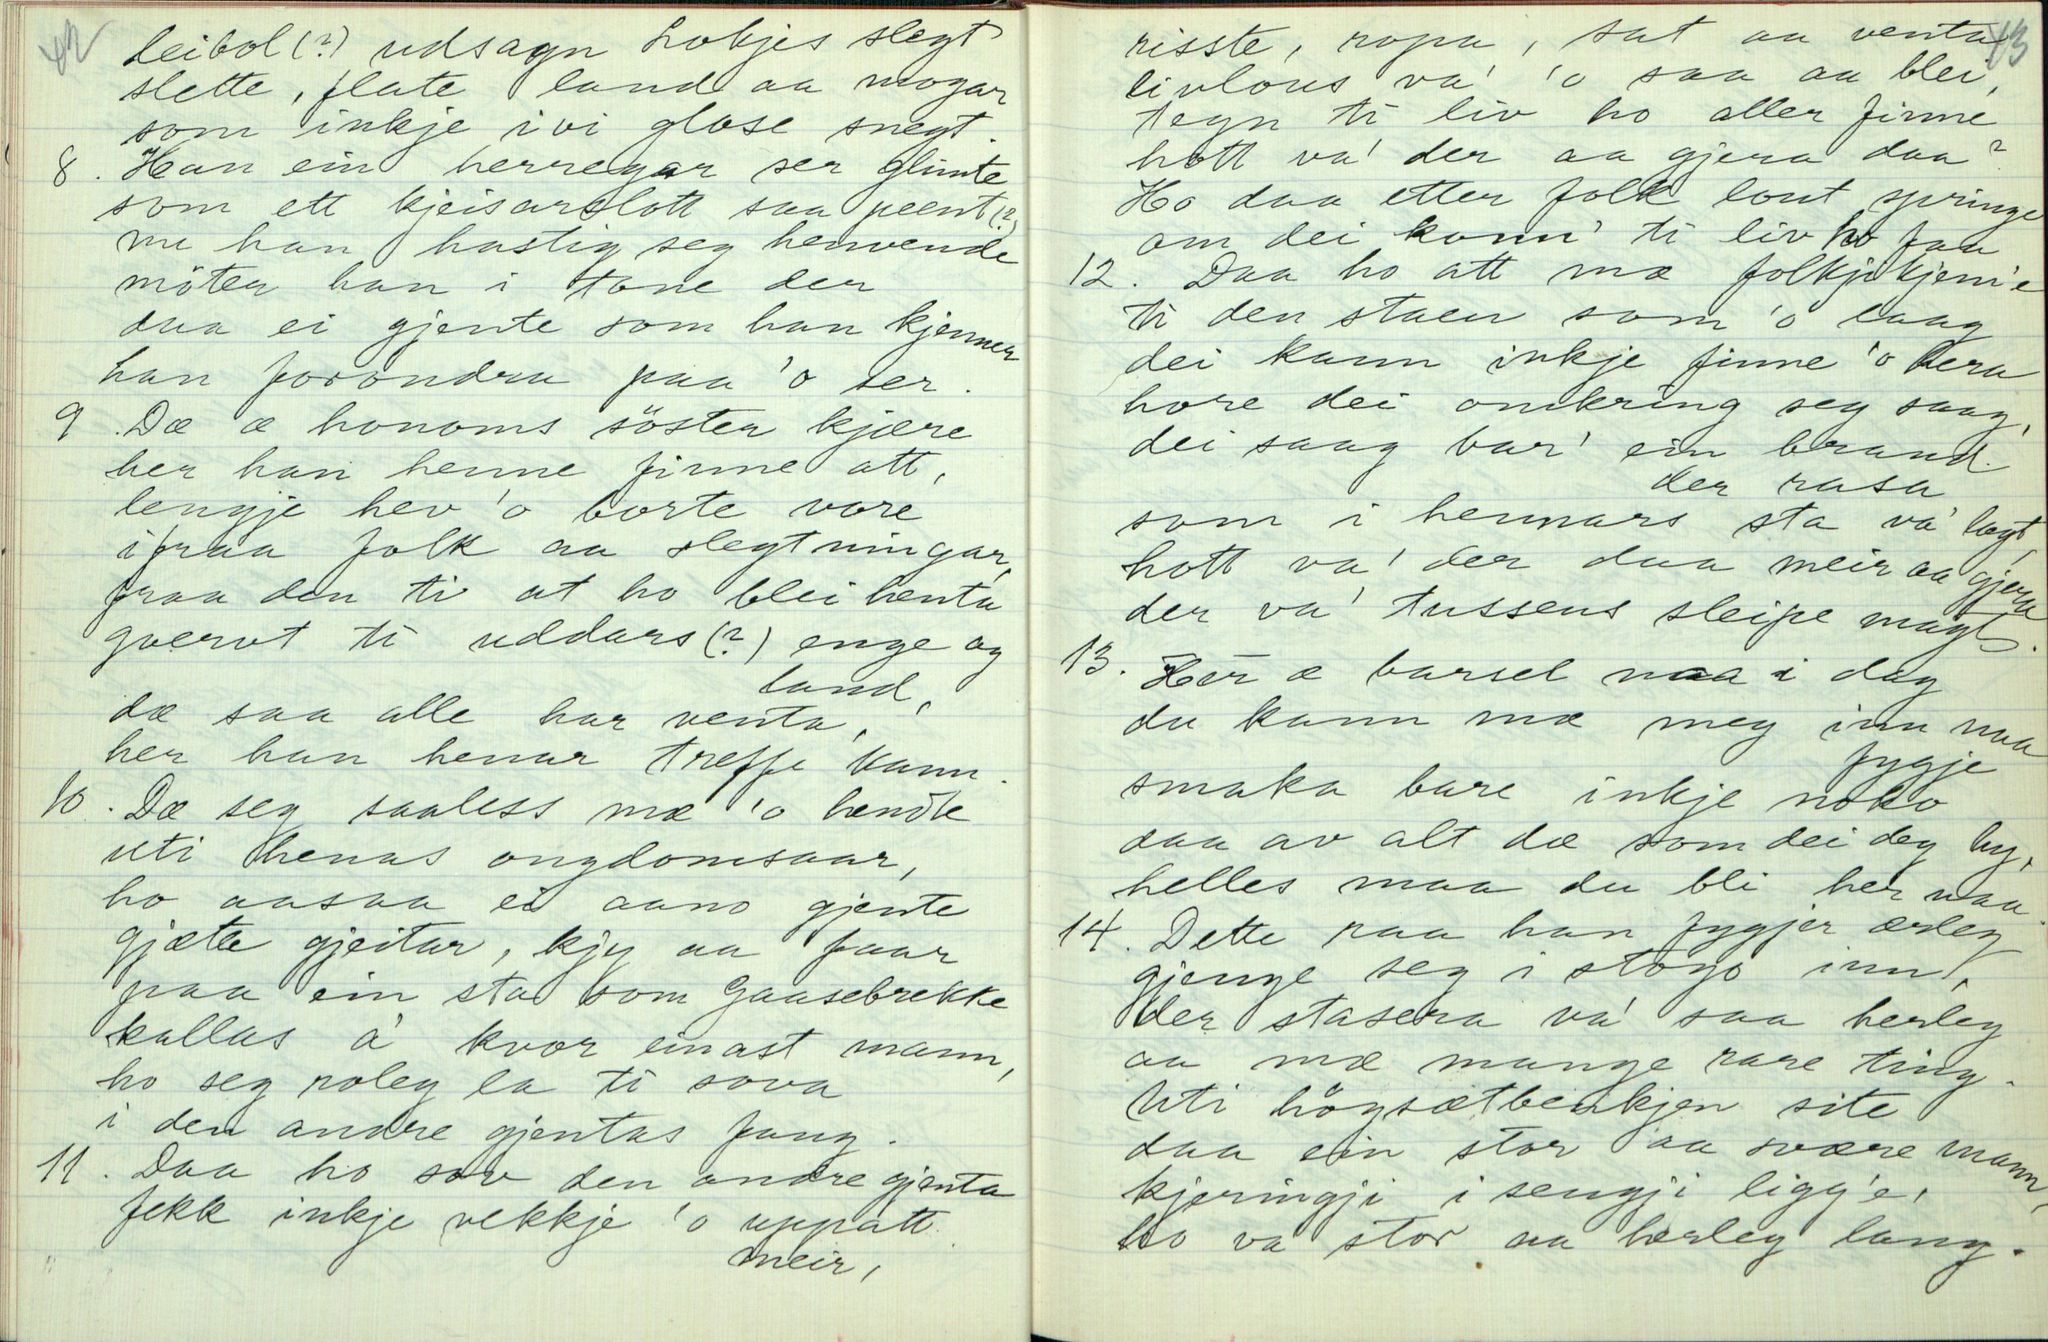 42
Leibol (?) udsagn Lokjes slegt
slette, flate land aa mogar
som inkje ivi glose snegt.
8. Han ein herregar ser glimte
som ett kjeisarslott saa peent (?)
nu han hastig seg henvende
möter han i tone der
daa ei gjente som han kjenner
han forondra paa 'o ser.
9. Dæ æ honoms söster kjære
her han henne finne att,
lengje hev 'o borte vore
ifraa folk aa slegtningar,
fraa den ti at ho blei henta
gvervt ti uddars (?) enge og
land,
dæ saa alle har venta,
her han henar treffe kann.
10. Dæ seg saaless mæ 'o hendte
uti henas ongdomsaar,
ho aasaa ei aano gjente
gjætte gjeitar, kjy aa faar
paa ein sta som Gaasebrekke
kallas à kvor einast mann,
ho seg roleg la ti sova
i den andre gjentas fang.
11. Daa ho sov den andre gjenta
fekk inkje vekkje 'o uppatt
meir,
43
risste, ropa, sat aa venta
livlous va' 'o saa aa blei,
tegn ti liv ho aller finne
hott va' der aa gjera daa?
Ho daa etter folk lout springe
om dei konn' ti liv ho faa
12. Daa ho att mæ folkji kjem'e
ti den staen som 'o laag
dei kann inkje finne 'o hera
hore dei omkring seg saag,
dei saag bar' ein brand
der rasa
som i hennars sta va' lagt,
hott va' der daa meir aa gjera
der va' tussens sleipe magt.
13. Her æ barsel naa i dag
du kann mæ meg inn naa
fygje
smaka bare inkje noko
daa av alt dæ som dei deg by,
helles maa du bli her naa.
14. Dette raa han fygjer ærleg
gjenge seg i stogo inn,
der stasera va' saa herleg
aa mæ mange rare ting.
Uti högsætbenkjen site
daa ein stor aa svære mann,
kjeringji i sengji ligg'e,
ho va stor aa herleg lang.